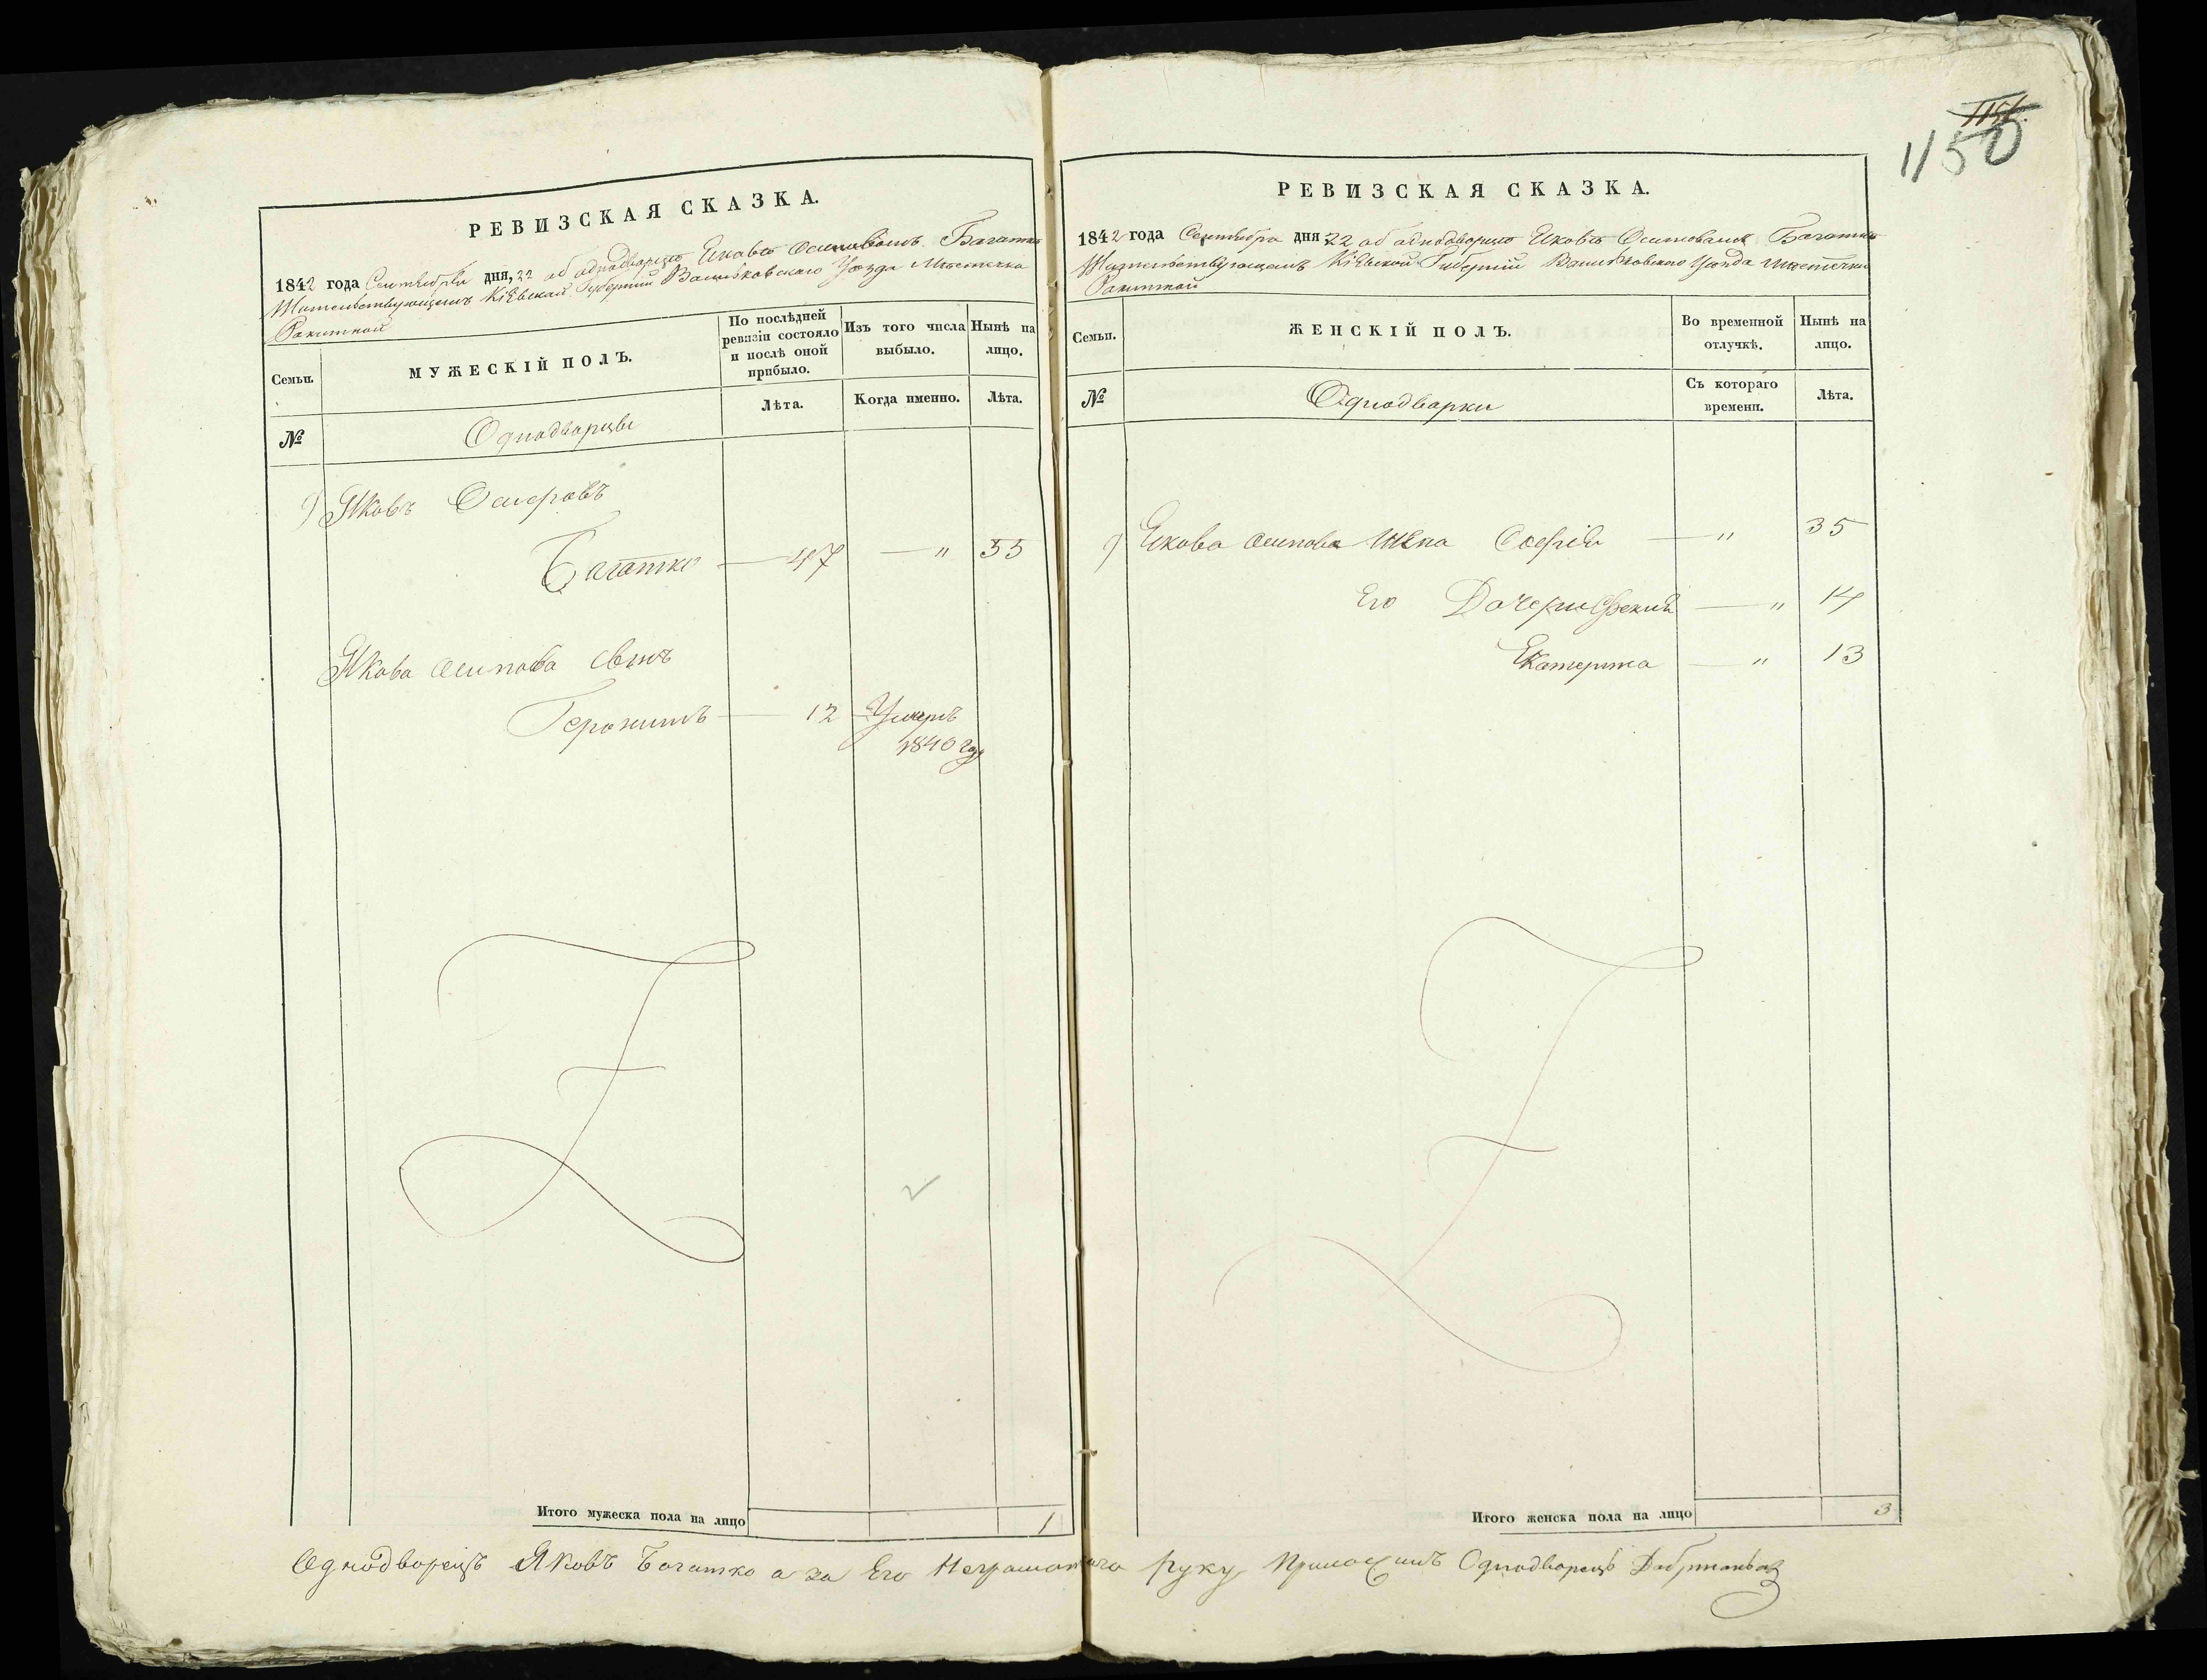 1156.
1150
РЕВИЗСКАЯ СКАЗКА.
1842 года Сентября дня, 22 об однодворце Яковѣ Осиповомъ Багатко
Жительствующемъ Кіевской Губерніи Васильковскаго Уѣзда Мѣстечка
Ракитной
Семьи. МУЖЕСКІЙ ПОЛЪ. По послѣдней ревизіи состояло и послѣ оной прибыло. Изъ того числа выбыло. Нынѣ на лицо.
№ Однодворцы Лѣта. Когда именно. Лѣта.
Яковъ
Багатко — 47 — " 55
Якова Осипова сынъ
Геронимъ — 12 — Умеръ
1840 году
Итого мужеска пола на лицо 1
РЕВИЗСКАЯ СКАЗКА.
1842 года Сентября дня 22 об однодворце Яковѣ Осиповомъ Багатко
Жительствующемъ Кіевской Губерніи Васильковскаго Уѣзда Мѣстечка
Ракитной
Семьи. ЖЕНСКІЙ ПОЛЪ. Во временной отлучкѣ. Нынѣ на лицо.
№ Однодворки Съ котораго времени. Лѣта.
Якова Осипова Жена Софія — " 35
Его Дочери — " 14
Екатерина — " 13
Итого женска пола на лицо 3
Однодворецъ Яковъ Багатко а за Его Неграмотнаго руку Приложилъ Однодворецъ